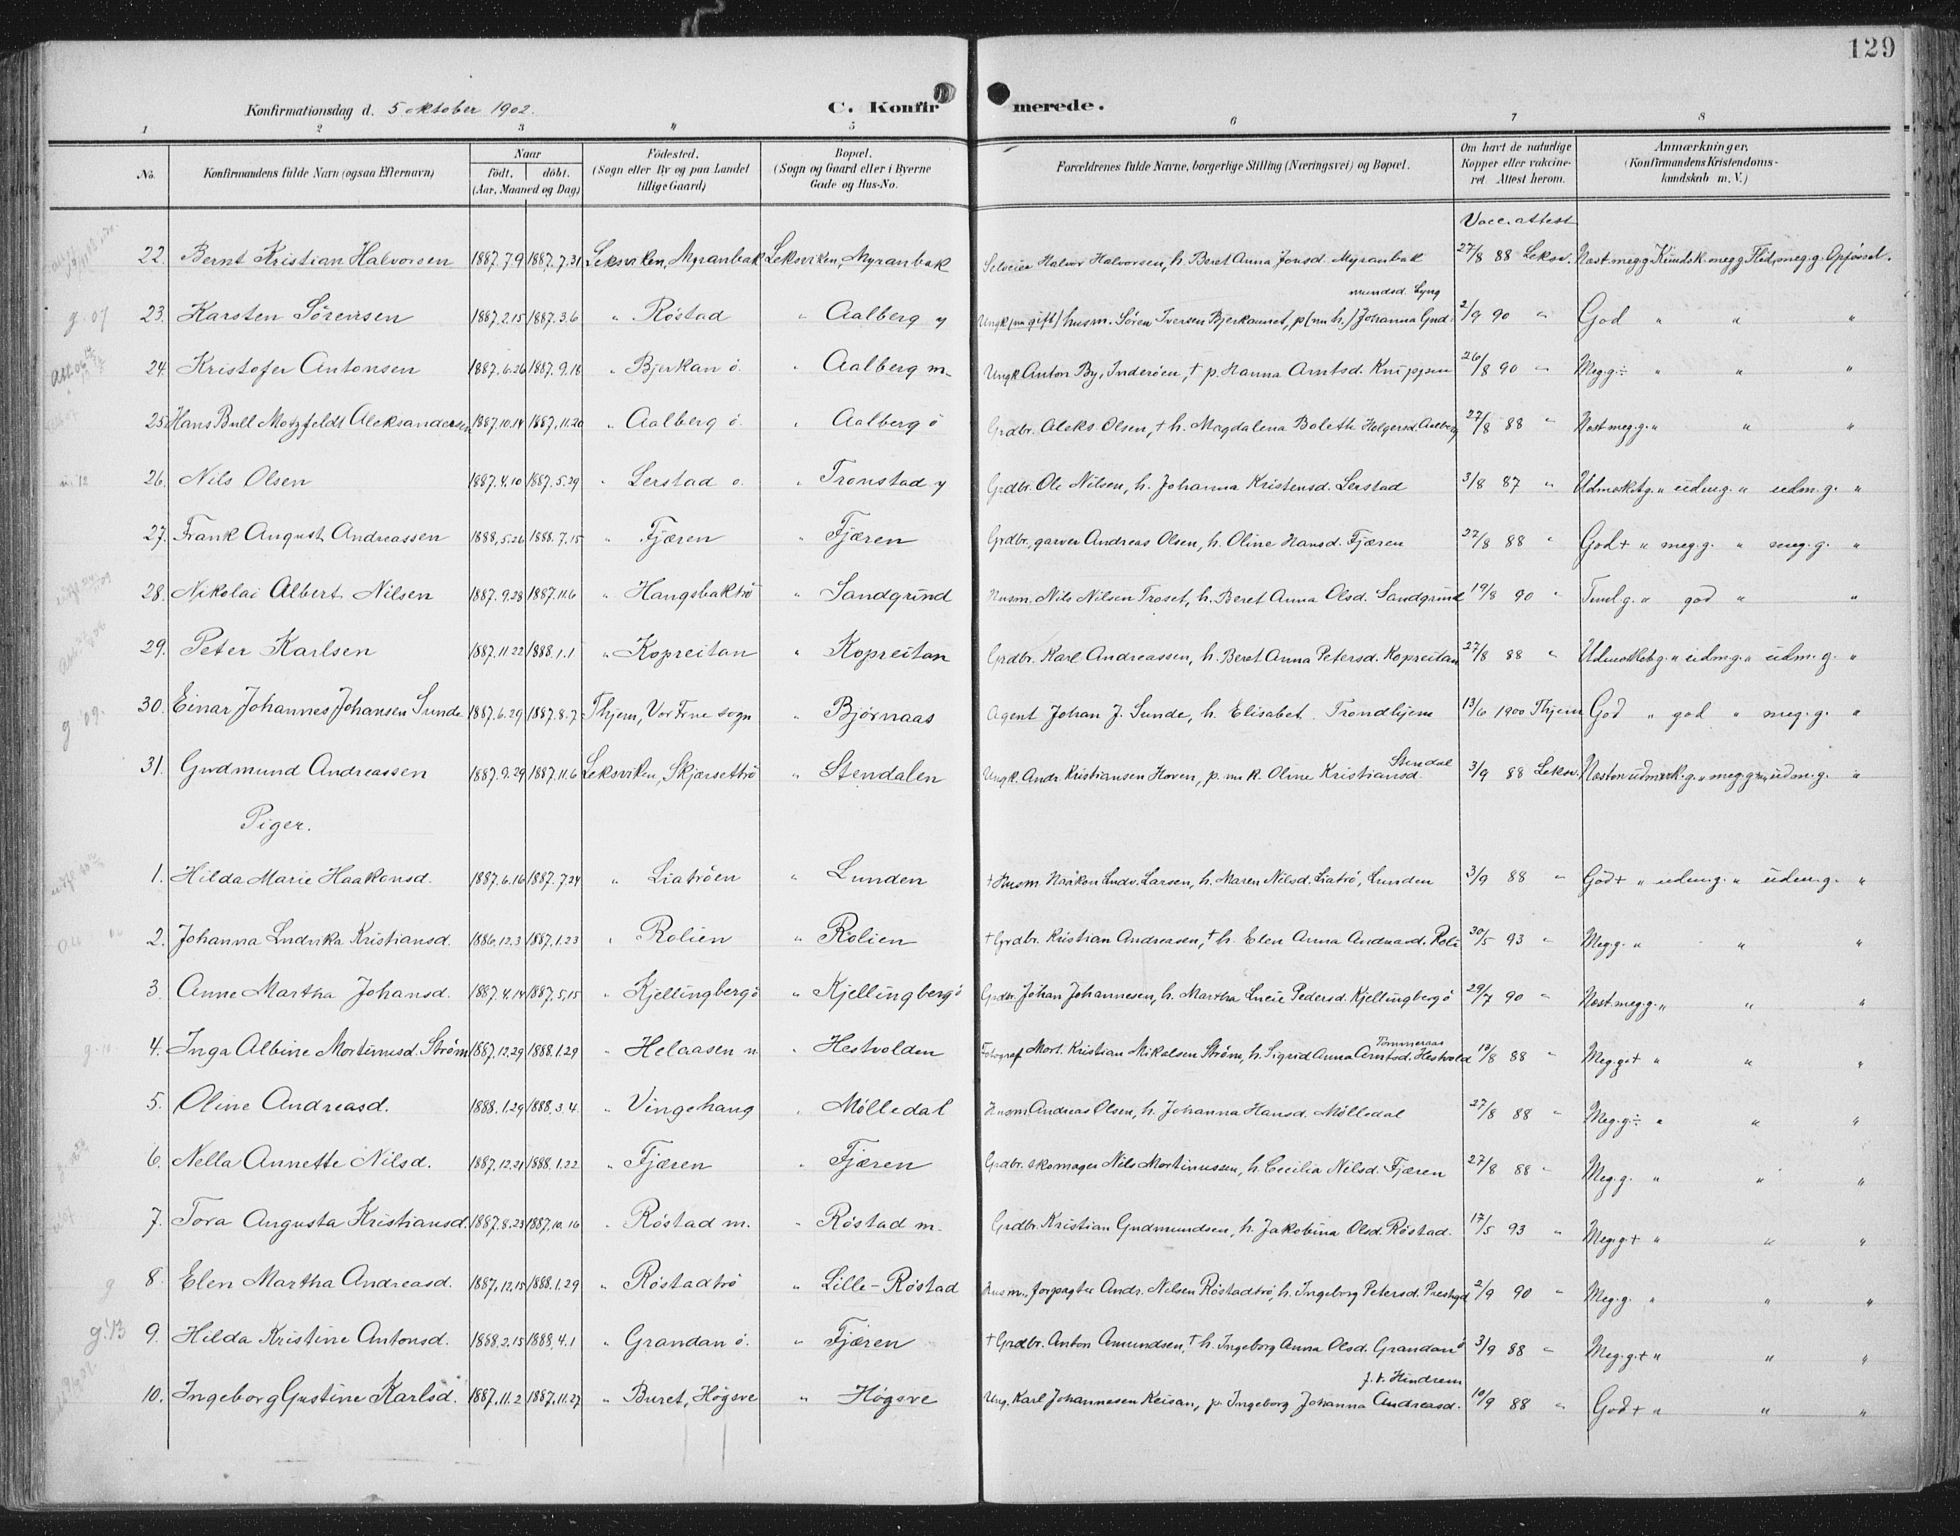 129
Konfirmationsdag d. 5 oktober 1902.
C. Konfirmerede.
1 2 3 4 5 6 7 8
No. Konfirmandens fulde Navn (ogsaa Efternavn) Naar født. døbt. (Aar, Maaned og Dag) Fødested. (Sogn eller By og paa Landet tillige Gaard) Bopæl. (Sogn og Gaard eller i Byerne Gade og Hus-No. Forældrenes fulde Navne, borgerlige Stilling (Næringsvei) og Bopæl. Om havt de naturlige Kopper eller vakcineret Attest herom. Anmærkninger. (Konfirmandens Kristendomskundskab m. V.)
Vacc. attest
22. Bernt Kristian Halvorsen 1887.7.9 1887.7.31 Leksviken, Myranbak Leksviken, Myranbak Selveier Halvor Halvorsen, h. Beret Anna Jonsd. Myranbak 27/8 88 Leksv. Næst. meg g. Kundsk. meg g. Flid, meg. g. Opførsel.
mundsd. Lyng
23. Karsten Sörensen 1887.2.15 1887.3.6 " Röstad " Aalberg y Ungk. (nu gift) husm. Sören Iversen Bjerkannet, p (nu h.) Johanna Gud 2/9 90 " God " " "
24. Kristofer Antonsen 1887.6.26 1887.9.18 " Bjerkan ö. " Aalberg m. Ungk. Anton By, Inderöen, + p. Hanna Arntsd. 26/8 90 " Meg.g÷ " " "
25. Hans Bull Motzfeldt Aleksandersen 1887.10.14 1887.11.20 " Aalberg ö. " Aalberg ö Grdbr. Aleks Olsen, + h. Magdalena Boleth Holgersd. Aalberg 27/8 88 " Næst meg.g. " " "
26. Nils Olsen 1887.4.10 1887.5.29 " Lerstad ö. " Tronstad y Grdbr. Ole Nilsen, h. Johanna Kristensd. Lerstad 3/8 87 " Udmærket g. " udm.g. " udm.g. "
27. Frank August Andreassen 1888.5.26 1888.7.15 " Fjæren " Fjæren Grdbr., garver Andreas Olsen, h. Oline Hansd. Fjæren 27/8 88 " God+ " meg.g. " meg.g. "
28. Nikolai Albert Nilsen 1887.9.28 1887.11.6 " Hangsbaktrö " Sandgrund Husm. Nils Nilsen Troset, h. Beret Anna Olsd. Sandgrund 19/8 90 " Teml.g. " god " "
29. Peter Karlsen 1887.11.22 1888.1.1 " Kopreitan " Kopreitan Grdbr. Karl Andreassen, h. Beret Anna Petersd. Kopreitan 27/8 88 " Udmærket g. " udm.g. " udm.g. "
30. Einar Johannes Johansen Sunde 1887.6.29 1887.8.7 Thjem, Vor Frue sogn " Björnaas Agent Johan J. Sunde, h. Elisabet Trondhjem 13/6 1900 Thjem God " god " meg.g. "
Stendal
31. Gudmund Andreassen 1887.9.29 1887.11.6 Leksviken, Skjærsettrö " Stendalen Ungk. Andr. Kristiansen Hoven, p. nu k. Oline Kristiansd. 3/9 88 Leksv. Næsten udmærk.g. " meg.g. udm.g. "
Piger.
1. Hilda Marie Haakonsd. 1887.6.16 1887.7.24 " Liatröen " Lunden + Husm. Haakon Ludv. Larsen, h. Maren Nilsd. Liatrö, Lunden 3/9 88 " God+ " udm.g. " udm.g. "
2. Johanna Ludvika Kristiansd. 1886.12.3 1887.1.23 " Rolien " Rolien + Grdbr. Kristian Andreasen, + h. Elen Anna Andreasd. Roli 30/5 93 " Meg.g. " " "
3. Anne Martha Johansd. 1887.4.14 1887.5.15 " Kjellingberg ö " Kjellingberg ö Grdbr. Johan Johannesen, h. Martha Lucie Pedersd. Kjellingberg ö 29/7 90 " Næst.meg.g. " " "
Tömmeraas
4. Inga Albine Mortinusd. Ström 1887.12.29 1888.1.29 " Helaasen n " Hestvolden Fotograf Mort. Kristian Mikelsen Ström, h. Sigrid Anna Arntsd. Hestvold 13/8 88 " Meg.g+ " " "
5. Oline Andreasd. 1888.1.29 1888.3.4. " Vingehaug " Mölledal Husm. Andreas Olsen, h. Johanna Hansd. Mölledal 27/8 88 " Meg.g÷ " " "
6. Nella Annette Nilsd. 1887.12.21 1888.1.22 " Fjæren " Fjæren Grdbr. skomager Nils Mortinussen, h. Cecilia Nilsd. Fjæren 27/8 88 " Meg.g. " " "
7. Tora Augusta Kristiansd. 1887.8.23 1887.10.16 " Röstad m. " Röstad m. Grdbr. Kristian Gudmundsen, h. Jakobina Olsd. Röstad. 17/5 93 " Meg.g+ " " "
8. Elen Martha Andreasd. 1887.12.15 1888.1.29 " Röstadtrö " Lille-Röstad Husm., forpagter Andr. Nilsen Röstadtrö, h. Ingeborg Petersd. 2/9 90 " Meg.g. " " "
9. Hilda Kristine Antonsd. 1888.2.15 1888.4.1 " Grandan ö. " Fjæren + Grdbr. Anton Amundsen, + h. Ingeborg Anna Olsd. Grandan ö 3/9 88 " Meg.g+ " " "
f. k. Hindrem
10. Ingeborg Gustine Karlsd. 1887.11.2 1887.11.27 " Buret, Högsve " Högsve Ung. Karl Johannesen Keisan, p. Ingeborg Johanna Andreasd. 10/9 88 " God+ " " "
g. 07
g '09.
g '13